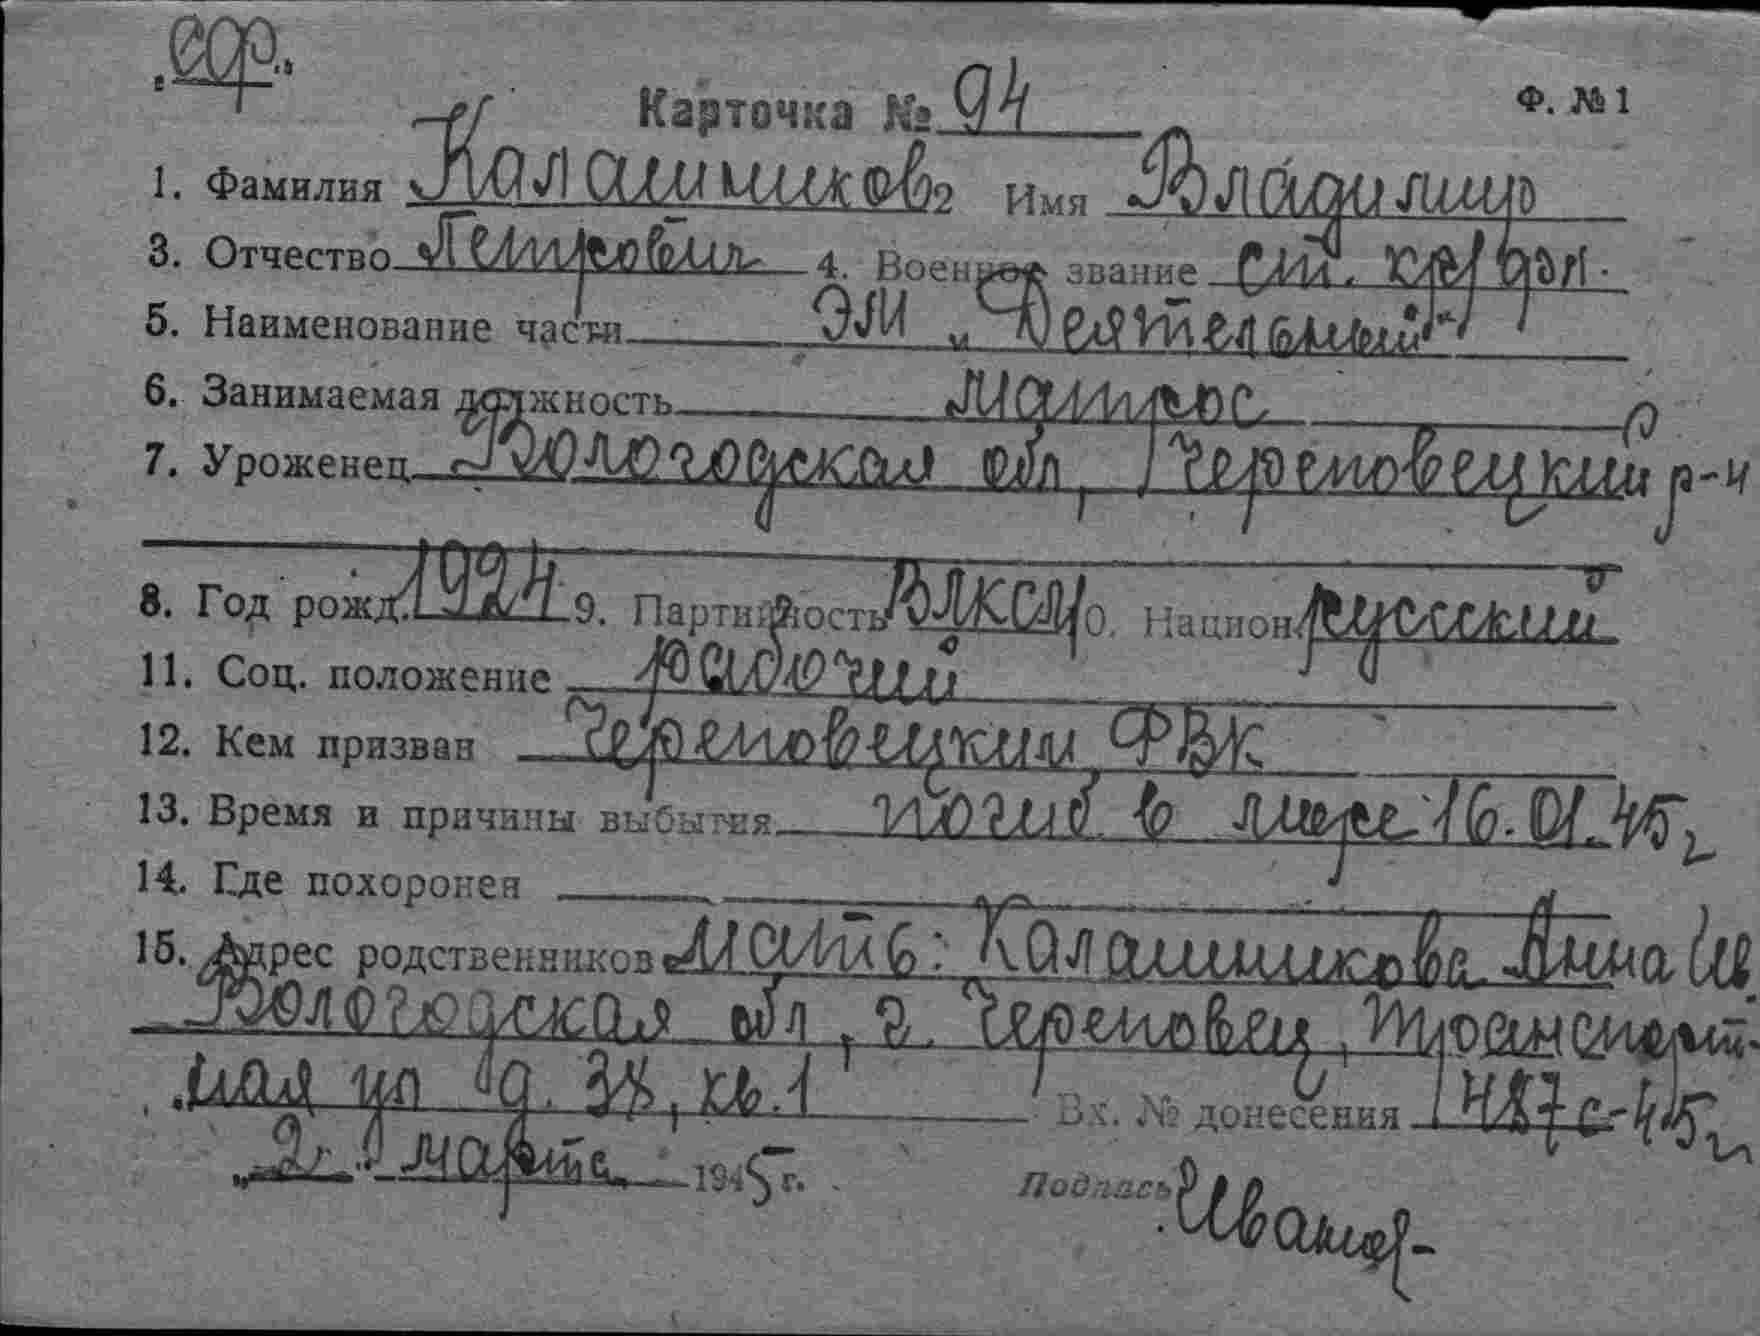 Карточка № 94 Ф. № 1
1. Фамилия Калашников 2 Имя Владимир
3. Отчество Петрович 4. Военное звание ст. кр/фл.
5. Наименование части ЭМ „Деятельный"
6. Занимаемая должность матрос
7. Уроженец Вологодская обл, Череповецкий р-н
8. Год рожд. 1924 9. Партийность ВЛКСМ 10. Национ. русский
11. Соц. положение рабочий
12. Кем призван Череповецким ФВК
13. Время и причины выбытия погиб в море 16.01.45 г
14. Где похоронен
15. Адрес родственников Мать: Калашникова Анна Ив.
Вологодская обл, г. Череповец, Транспорт-
ная ул д. 38, кв. 1 Вх. № донесения 1487с-45г
„2" марта 1945 г. Подпись